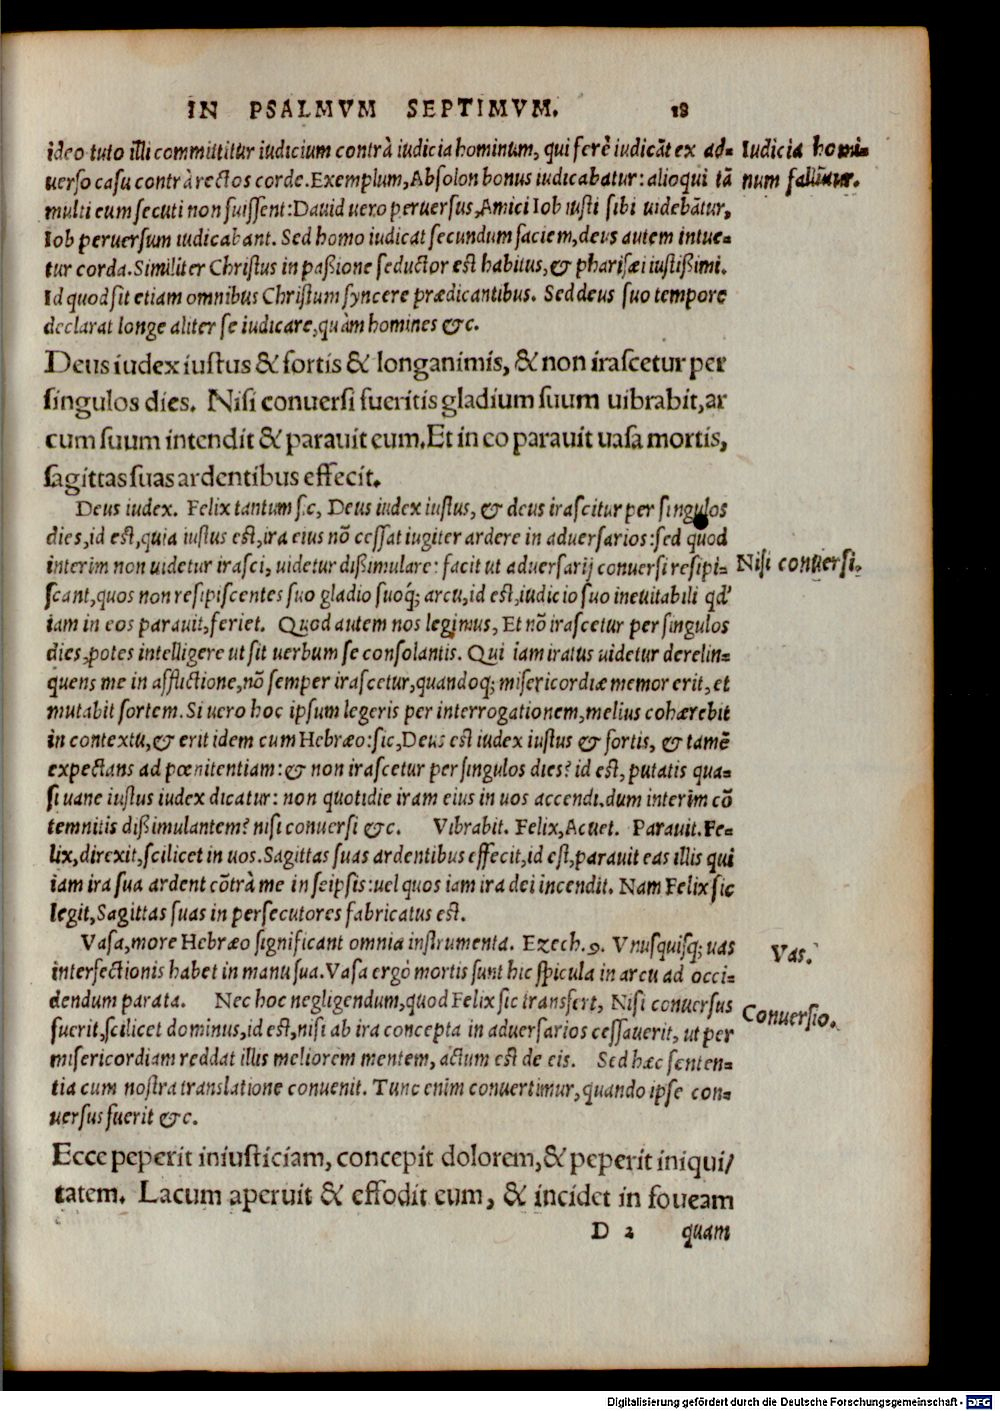 IN PSALMVM SEPTIMVM. 18
ideo tuto illi committitur iudicium contrà iudicia hominum, qui ferè iudicãt ex ad=
uerso casu contrà rectos corde. Exemplum, Absolon bonus iudicabatur: alioqui tã
multi eum secuti non fuissent: Dauid uero peruersus, Amici Iob iusti sibi uidebãtur,
Iob peruersum iudicabant. Sed homo iudicat secundum faciem, deus autem intue=
tur corda. Similiter Christus in paßione seductor est habitus, & pharisæi iustißimi.
Id quod fit etiam omnibus Christum syncere prædicantibus. Sed deus suo tempore
declarat longe aliter se iudicare, quàm homines &c.
Iudicia homi=
num falluntur.
Deus iudex iustus & fortis & longanimis, & non irascetur per
singulos dies. Nisi conuersi fueritis gladium suum uibrabit, ar
cum suum intendit & parauit eum. Et in eo parauit uasa mortis,
sagittas suas ardentibus effecit.
Deus iudex. Felix tantum sic, Deus iudex iustus, & deus irascitur per singulos
dies, id est, quia iustus est, ira eius nõ cessat iugiter ardere in aduersarios: sed quod
interim non uidetur irasci, uidetur dißimulare: facit ut aduersarij conuersi resipi=
scant, quos non resipiscentes suo gladio suoq; arcu, id est, iudicio suo ineuitabili qd'
iam in eos parauit, feriet. Quod autem nos legimus, Et nõ irascetur per singulos
dies, potes intelligere ut sit uerbum se consolantis. Qui iam iratus uidetur derelin=
quens me in afflictione, nõ semper irascetur, quandoq; misericordiæ memor erit, et
mutabit sortem. Si uero hoc ipsum legeris per interrogationem, melius cohærebit
in contextu, & erit idem cum Hebræo: sic, Deus est iudex iustus & fortis, & tamẽ
expectans ad pœnitentiam: & non irascetur per singulos dies? id est, putatis qua=
si uane iustus iudex dicatur: non quotidie iram eius in uos accendi. dum interim cõ
temnitis dißimulantem? nisi conuersi &c. Vibrabit. Felix, Acuet. Parauit. Fe=
lix, direxit, scilicet in uos. Sagittas suas ardentibus effecit, id est, parauit eas illis qui
iam ira sua ardent cõtrà me in seipsis: uel quos iam ira dei incendit. Nam Felix sic
legit, Sagittas suas in persecutores fabricatus est.
Nisi conuersi.
Vasa, more Hebræo significant omnia instrumenta. Ezech. 9. Vnusquisq; uas
interfectionis habet in manu sua. Vasa ergò mortis sunt hic spicula in arcu ad occi=
dendum parata. Nec hoc negligendum, quod Felix sic transfert, Nisi conuersus
fuerit, scilicet dominus, id est, nisi ab ira concepta in aduersarios cessauerit, ut per
misericordiam reddat illis meliorem mentem, actum est de eis. Sed hæc senten=
tia cum nostra translatione conuenit. Tunc enim conuertimur, quando ipse con=
uersus fuerit &c.
Vas.
Conuersio.
Ecce peperit iniusticiam, concepit dolorem, & peperit iniqui/
tatem. Lacum aperuit & effodit eum, & incidet in foueam
D 2 quam
Digitalisierung gefördert durch die Deutsche Forschungsgemeinschaft - DFG